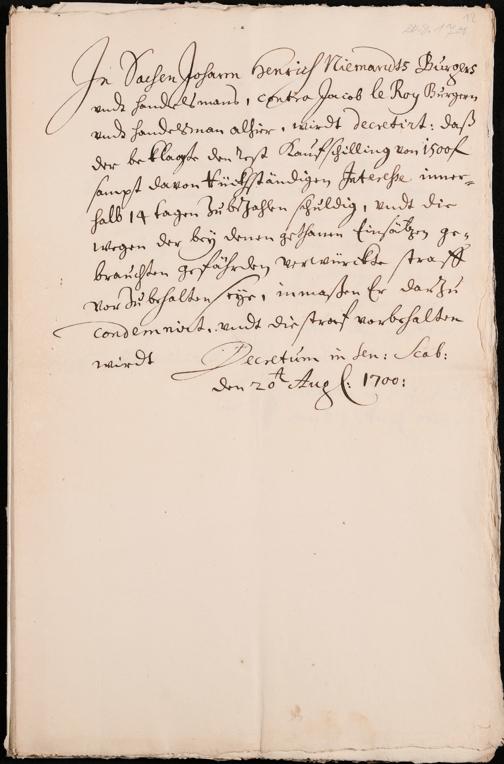 In Sachen Johann Henrich Niemandts Burgers
undt handelsmans, contra Jacob le Roy Burgern
undt handelsman alhier, wirdt decretirt: daß
der beklagte den rest Kauffschilling von 1500 f
sampt davon rückständigen Interesse inner=
halb 14 tagen zu bezahlen schuldig, undt die
wegen der bey denen gethanen Einsätzen ge-
brauchten gefährden verwürckte straff
vorzubehalten seye, inmaßen Er darzu
condemnirt, undt die straf vorbehalten
wirdt Decretum in Sen: Scab:
den 20t Aug: 1700: